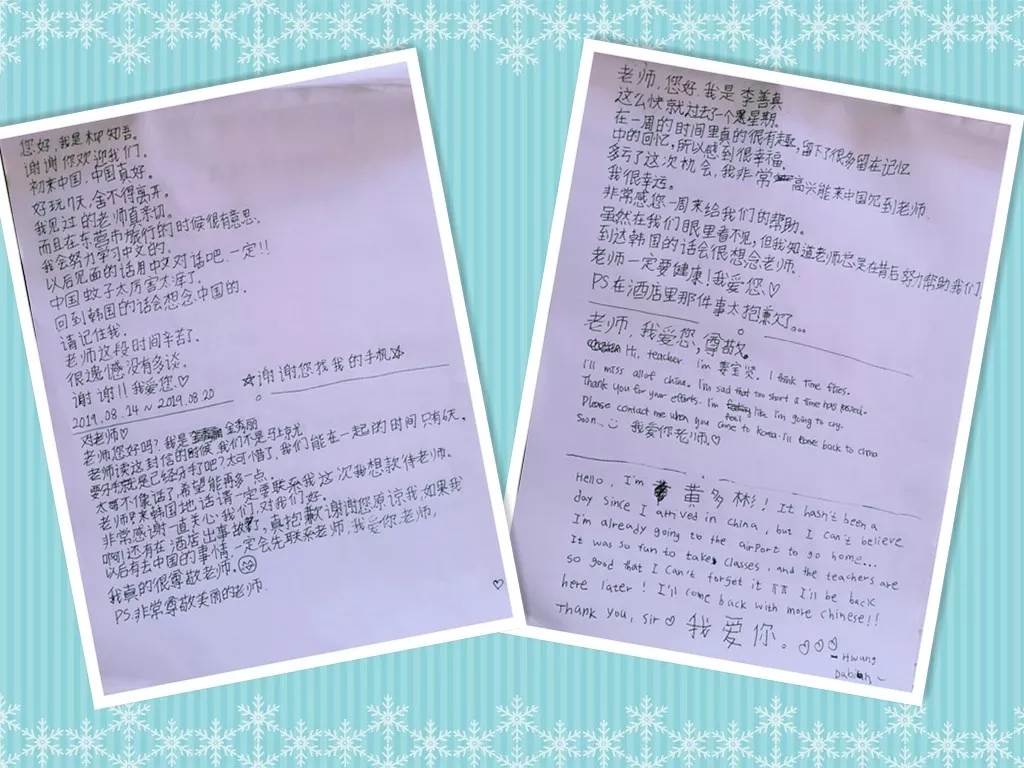 您好,我是柳知吾。
谢谢你欢迎我们。
初来中国,中国真好。
好玩7天,舍不得离开。
我见过的老师真亲切。
而且在东营市旅行的时候很有意思。
我会努力学习中文的。
以后见面的话用中文对话吧.一定!!
中国蚊子太厉害太牢了。
回到韩国的话会想念中国的.
请记住我.
老师这段时间辛苦了.
很遗憾没有多谈.
谢谢!!我爱您.♡
☆谢谢您找我的手机☆
2019.08.14~2019.08.20
老师♡
老师您好吗?我是 金秀丽
老师读这封信的时候,我们不是马上就
要分手就是已经分手吧?太可惜了,我们能在一起的时间只有6天,
太可不像话了,希望能再多一点.
老师?来韩国地话请一定要联系我这次我想款待老师。
非常感谢一直关心我们,对我们好。
啊!还有在酒店出事故了,真抱歉谢谢您原谅我,如果我
以后有去中国的事情,一定会先联系老师,我爱你.老师,
我真的很尊敬老师.
PS.非常尊敬美丽的老师.
♡
老师,您好,我是李善真
这么快就过了一个星期.
在一周的时间里真的很有趣,留下了很多留在记忆
中的回忆,所以感到很幸福.
多亏了这次机会,我非常高兴能来中国见到老师.
我很幸运。
非常感您一周来给我们的帮助.
虽然在我们眼里看不见,但我知道老师总是在背后努力帮助我们,
到达韩国的话会很想念老师.
老师一定要健康!我爱您.♡
PS在酒店里那件事太抱歉了。。。
老师,我爱您,尊敬。
Hi, teacher I'm 姜全贤. I think time flies.
I'll miss allof china. I'm sad that too short a time has passed.
Thank you for your efforts. I'm feel like I'm going to cry.
Please contact me when you come to korea. I'll come back to china
soon... 我爱你老师♡
Hello, I'm 黄多彬! It hasn't been a
day since I arrived in china, but I can't believe
I'm already going to the airport to go home...
It was so fun to take classes, and the teachers are
so good that I can't forget it ㅠㅠ I'll be back
here later! I'll come back with more chinese!!
Thank you, sir♡ 我爱你。♡♡♡
- Hwang
Dabin~